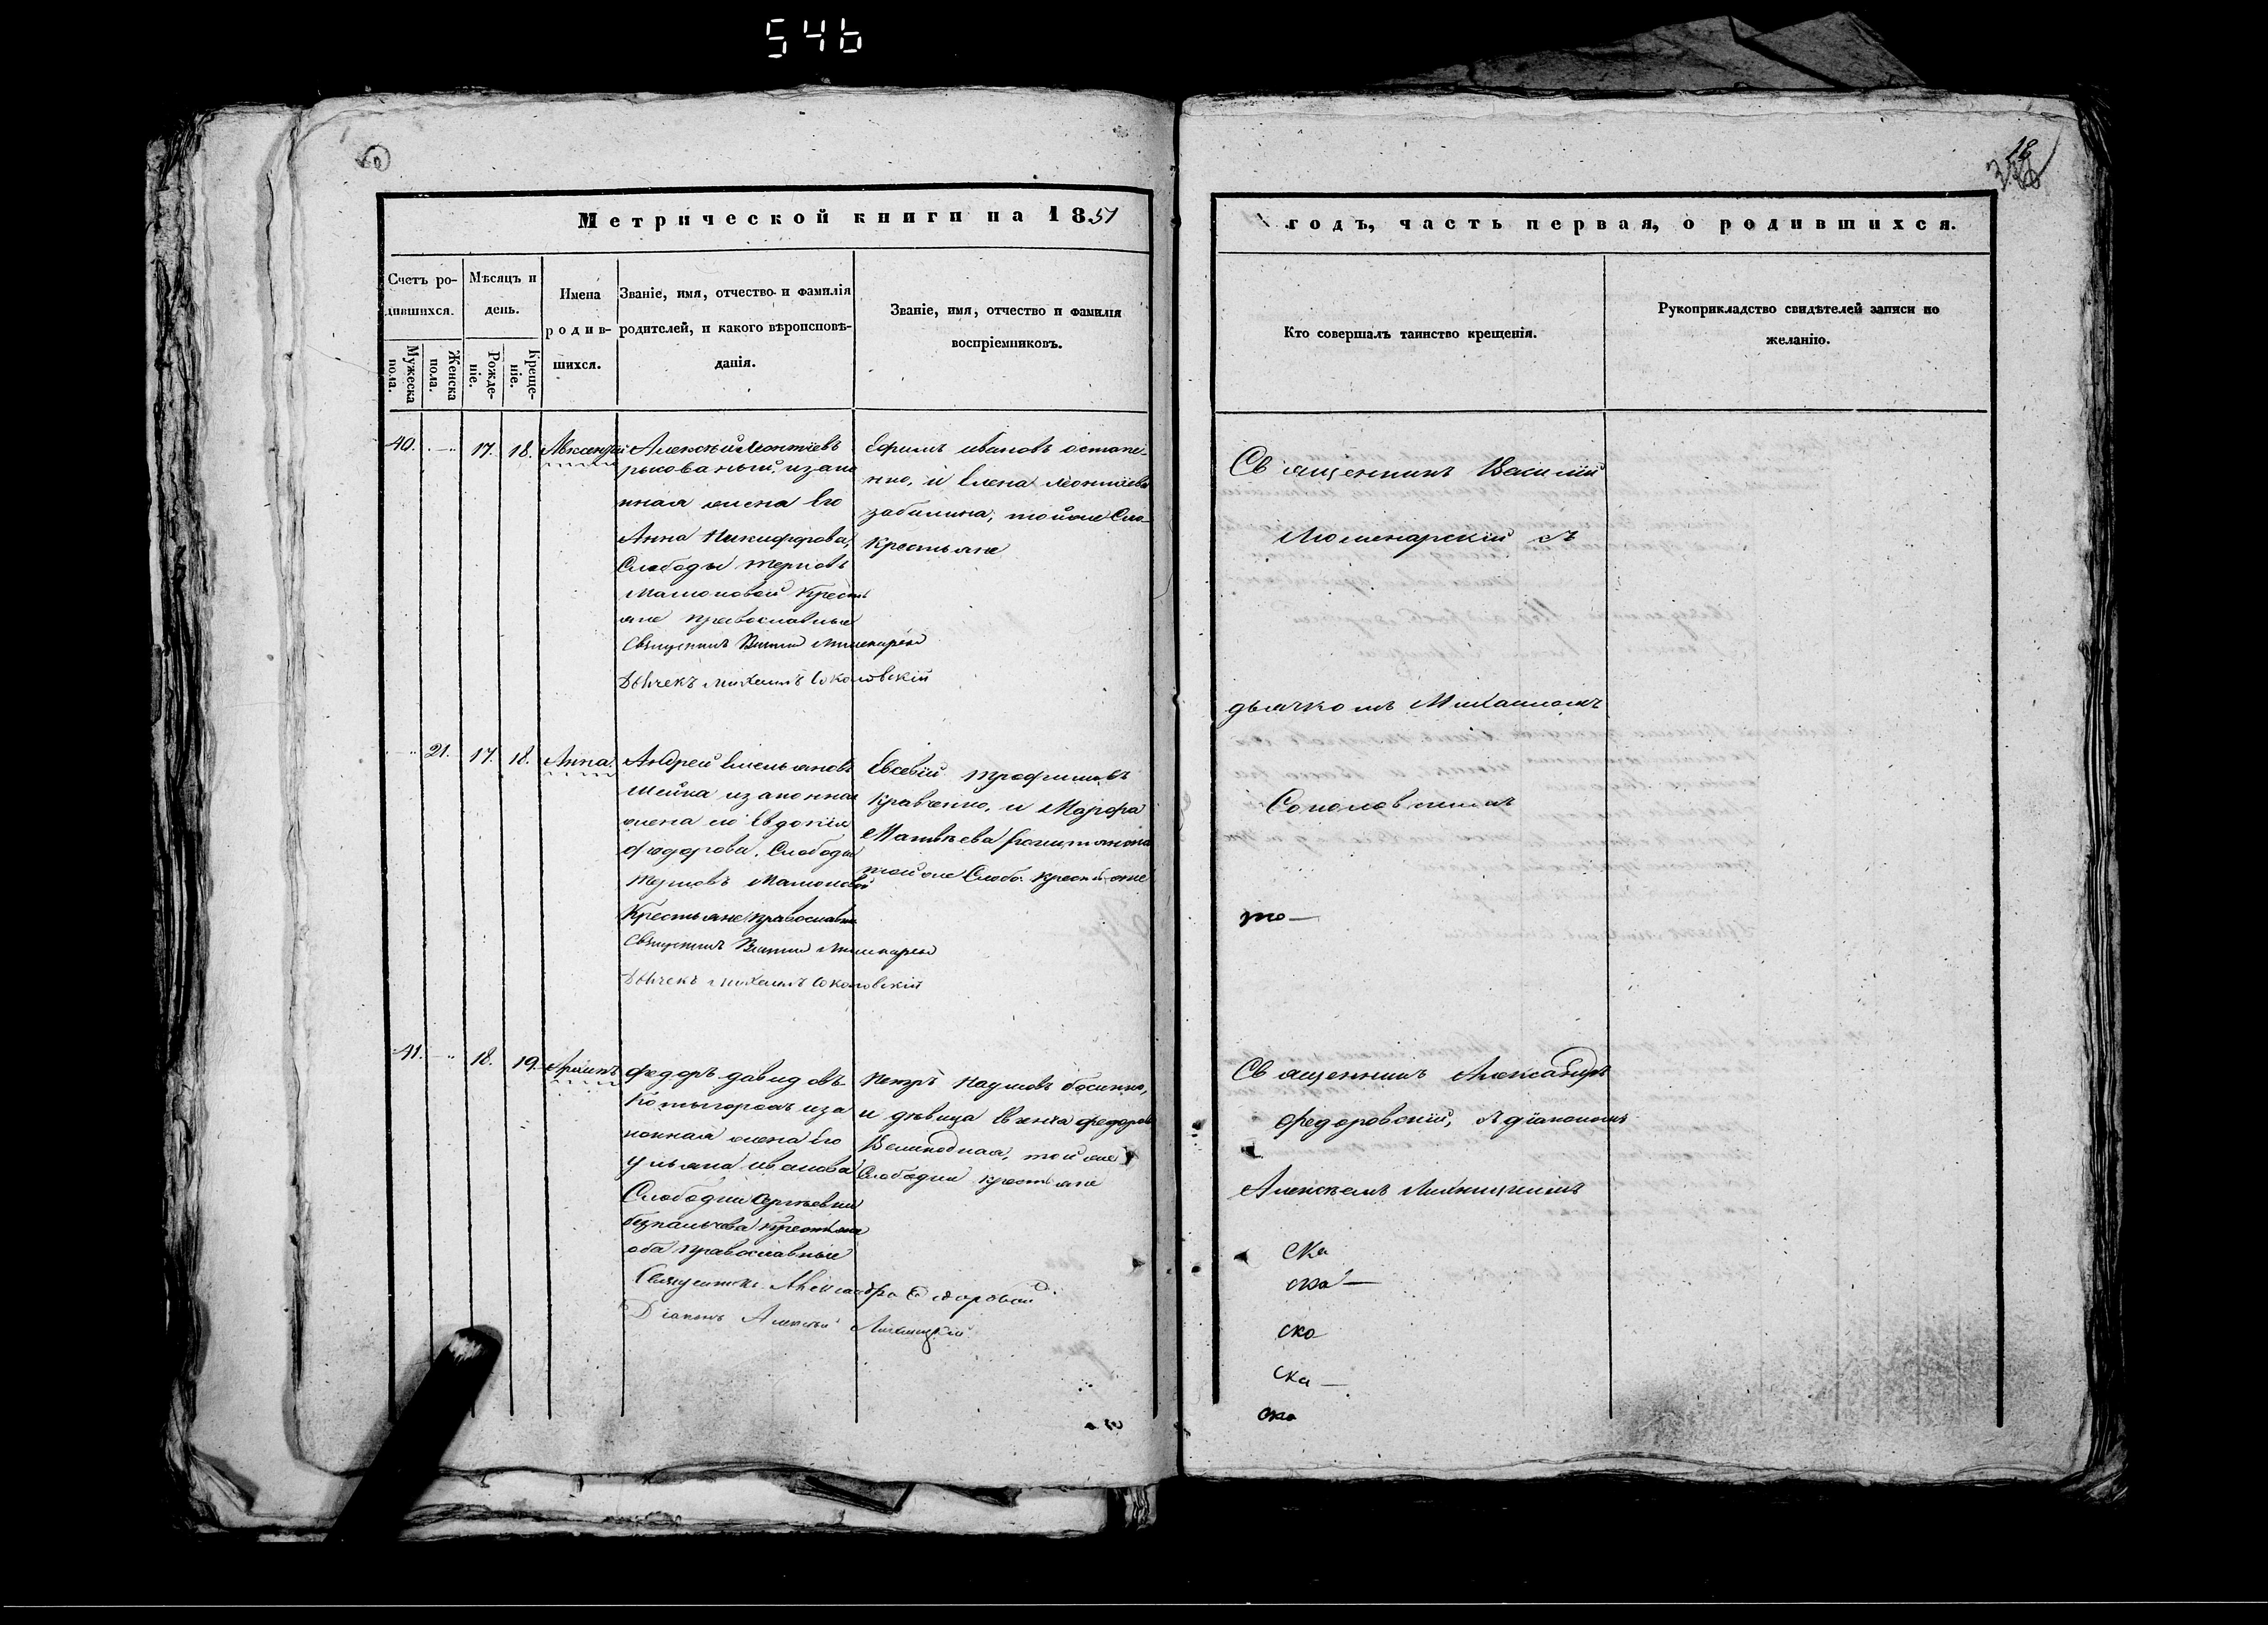 546
18
Метрической книги на 1851
годъ, часть первая, о родившихся.
Счетъ ро-
дившихся.
Мужеска
пола.
Женска
пола.
Мѣсяцъ и
день.
Рожде-
ніе.
Креще-
ніе.
Имена
родив-
шихся.
Званіе, имя, отчество и фамилія
родителей, и какого вѣроисповѣ-
данія.
Званіе, имя, отчество и фамилія
воспріемниковъ.
Кто совершалъ таинство крещенія.
Рукоприкладство свидѣтелей записи по
желанію.
40. 17. 18. Авксентій
Алексѣй Леонтіевъ
изако
нная жена его
Анна Никифорова,
Слободы терновъ
Крестъ
яне православные
Дьячекъ Михаилъ Соколовскій
Ефимъ ивановъ остапе
нко, и Елена Леонтіева
забилина, тойже Сло
Крестьяне
Священникъ Василій
съ
дьячкомъ Михаиломъ
Соколовскимъ
21. 17. 18. Анна
Андрей Емельяновъ
Шейка изаконная
жена его Евдокія
федорова, Слободы
терновъ
Крестьяне православны
Дьячекъ Михаилъ Соколовскій
Евсевій трофимовъ
Кравченко, и Марфа
Матвѣева
тойже Слобо: крестьяне
то—
41. 18. 19. Архипъ
федоръ давидовъ
иза
конная жена его
ульяна иванова
Слободки Сергѣевки
крестьяне
оба православные
Священникъ
Діаконъ Алексѣй
Петръ Наумовъ
и дѣвица федоров
тойже
Слободки крестьяне
Священникъ Александръ
федоровскій, съ діакономъ
Алексѣемъ
ска
ска—
ско
ска—
ска